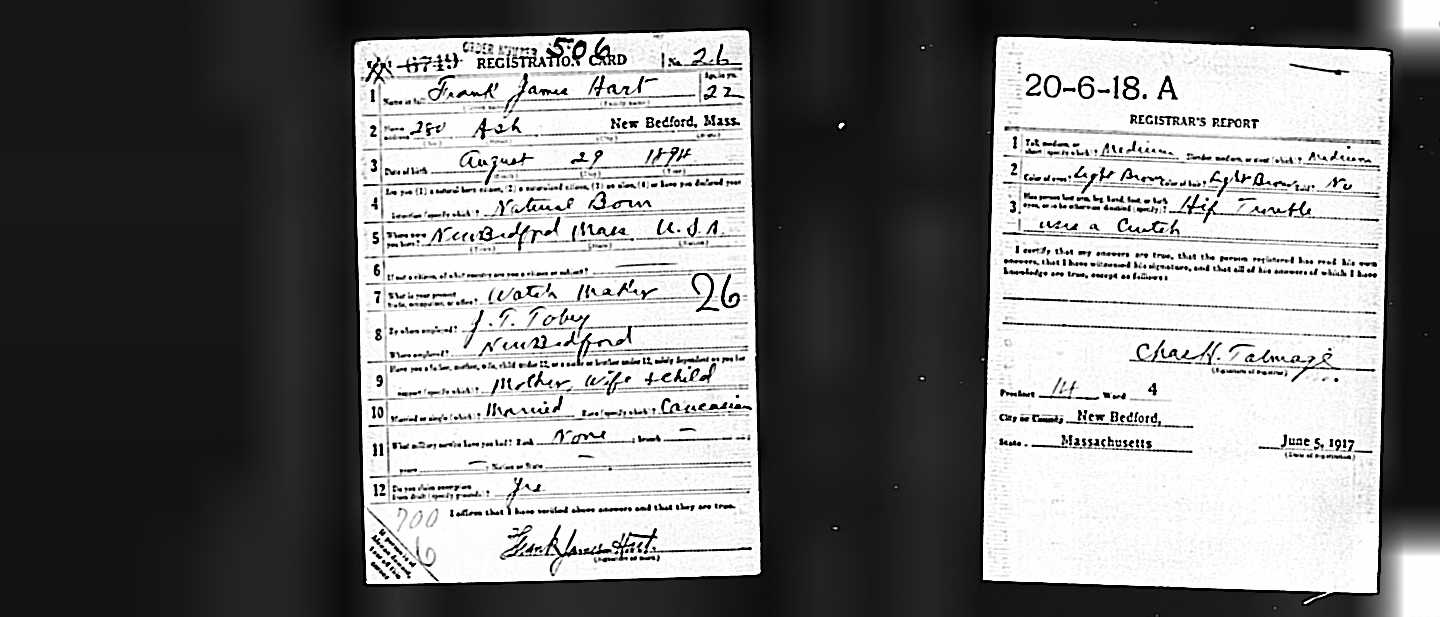 ORDER NUMBER 506
REGISTRATION CARD No. 26
1 Name in full Frank James Hart Age in yrs. 22
2 Home address 280 Ash New Bedford, Mass.
3 Date of birth August 29 1894
4 Are you (1) a natural born citizen, (2) a naturalized citizen, (3) an alien, (4) or have you declared your
intention (specify which)? Natural Born
5 Where were you born? New Bedford Mass U.S.A.
6 If not a citizen, of what country are you a citizen or subject?
7 What is your present trade, occupation, or office? Watch Maker 26
8 By whom employed? J. T. Tobey
Where employed? New Bedford
9 Have you a father, mother, wife, child under 12, or a sister or brother under 12, solely dependent on you for
support (specify which)? Mother, Wife + child
10 Married or single (which)? Married Race (specify which)? Caucasian
11 What military service have you had? Rank None ; branch —
years — ; Nation or State —
12 Do you claim exemption from draft (specify grounds)? Yes
I affirm that I have verified above answers and that they are true.
700
6
Frank James Hart.
(Signature or mark)
20-6-18. A
REGISTRAR'S REPORT
1 Tall, medium, or short (specify which)? Medium Slender, medium, or stout (which)? Medium
2 Color of eyes? Light Brown Color of hair? Light Brown Bald? No
3 Has person lost arm, leg, hand, foot, or both eyes, or is he otherwise disabled (specify)? Hip Trouble
uses a Crutch
I certify that my answers are true, that the person registered has read his own
answers, that I have witnessed his signature, and that all of his answers of which I have
knowledge are true, except as follows:
Chas H. Talmage
(Signature of registrar)
Precinct 14 Ward 4
City or County New Bedford,
State Massachusetts June 5, 1917
(Date of registration)